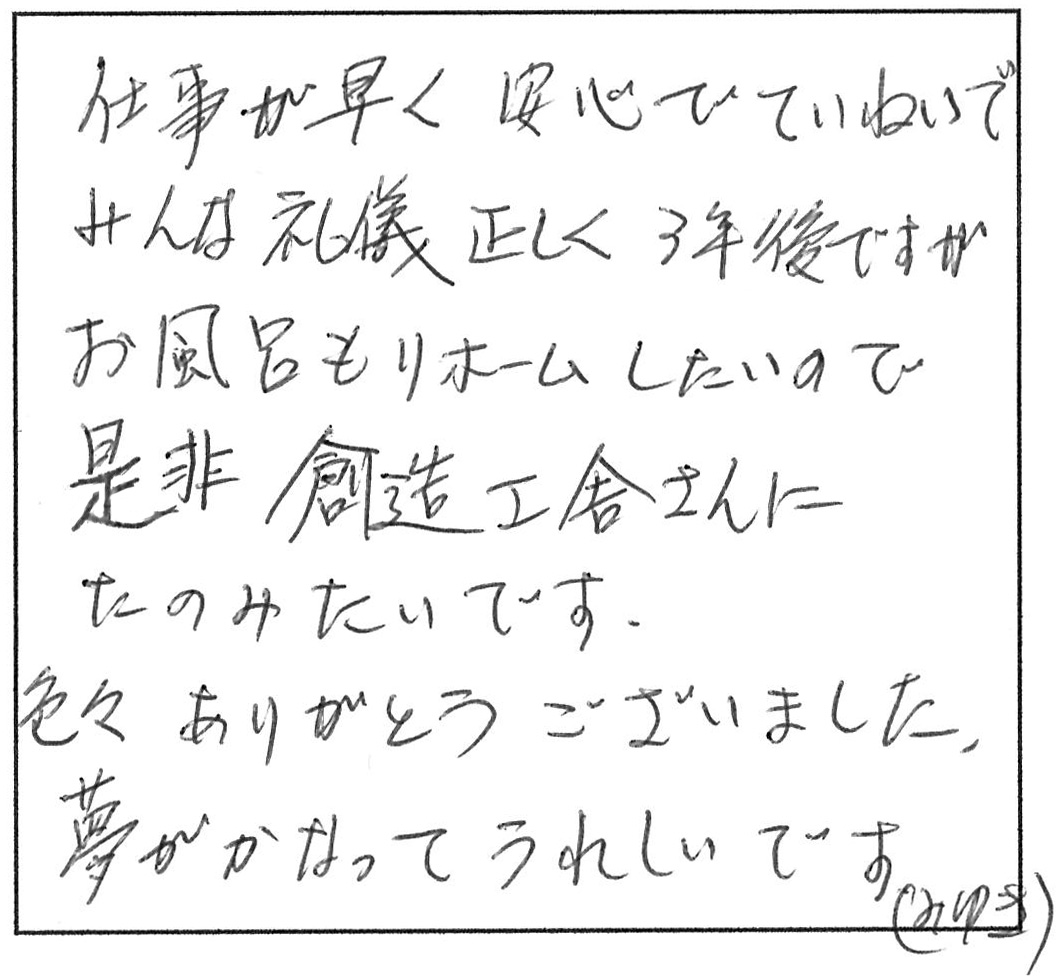 仕事が早く 安心でていねいで
みんな礼儀正しく 3年後ですが
お風呂もリホームしたいので
是非 創造工舎さんに
たのみたいです.
色々 ありがとうございました、
夢がかなってうれしいです
(みゆき)